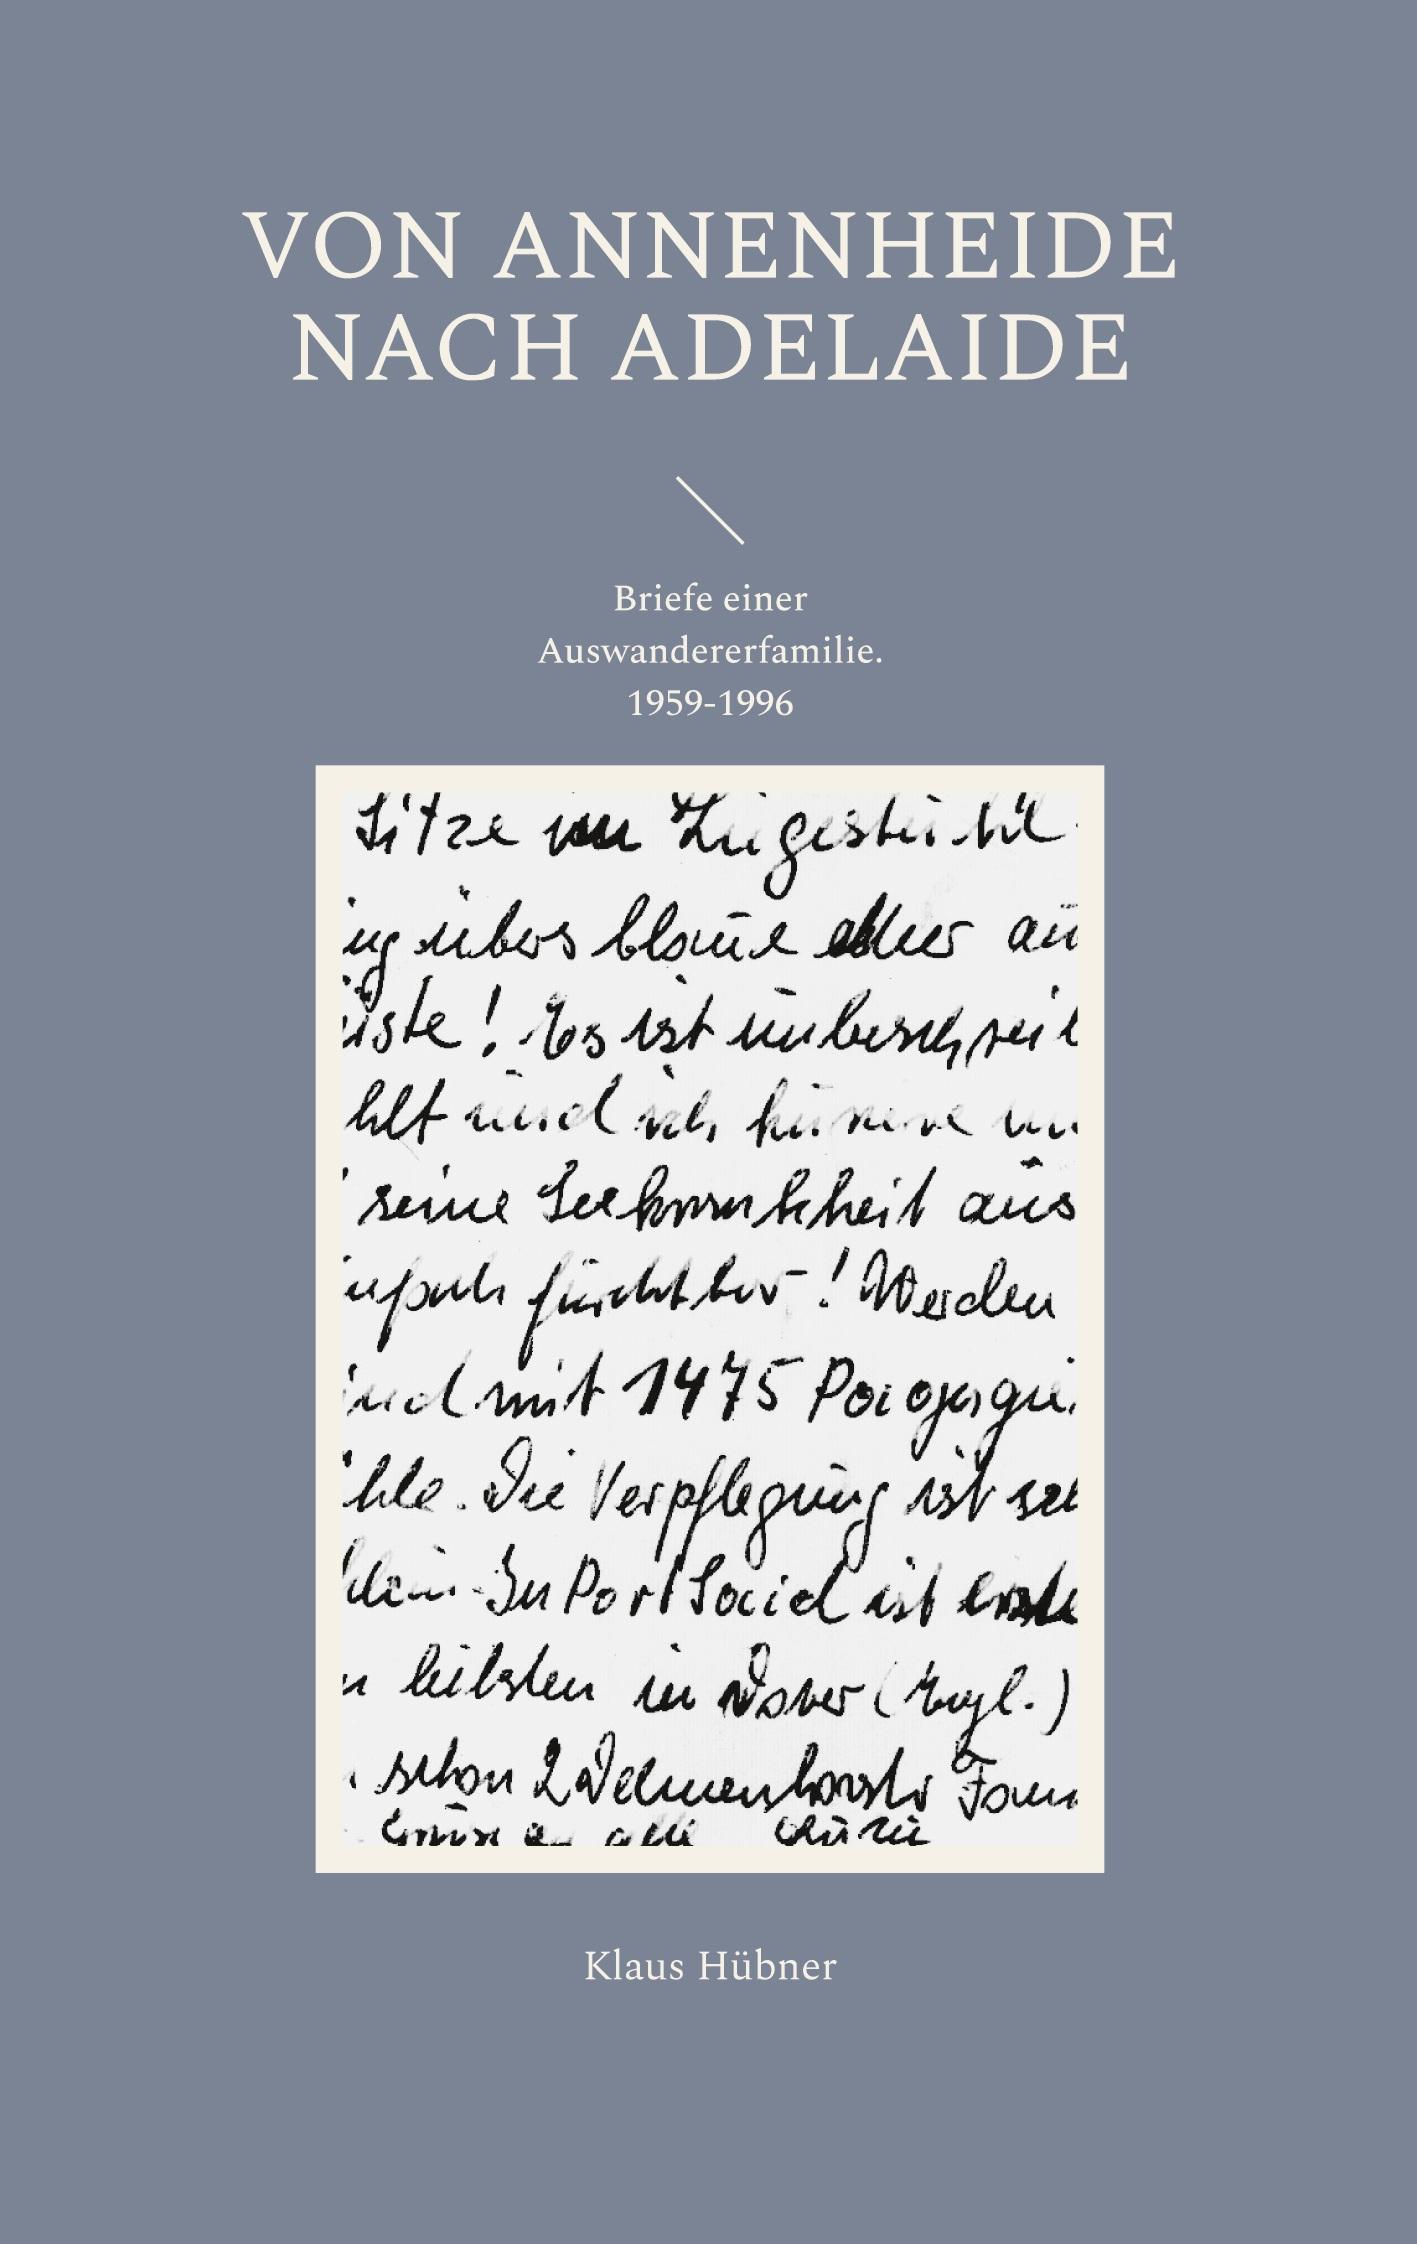 VON ANNENHEIDE
NACH ADELAIDE
Briefe einer
Auswandererfamilie.
1959-1996
Sitze im Liegestuhl
übers blaue Meer
! Es ist unbeschreib
und ich
seine Seekrankheit aus
furchtbar! Werden
mit 1475
Die Verpflegung ist
In Port Said ist
in Dover (Engl.)
schon 2 Delmenhorster Fam
alle
Klaus Hübner